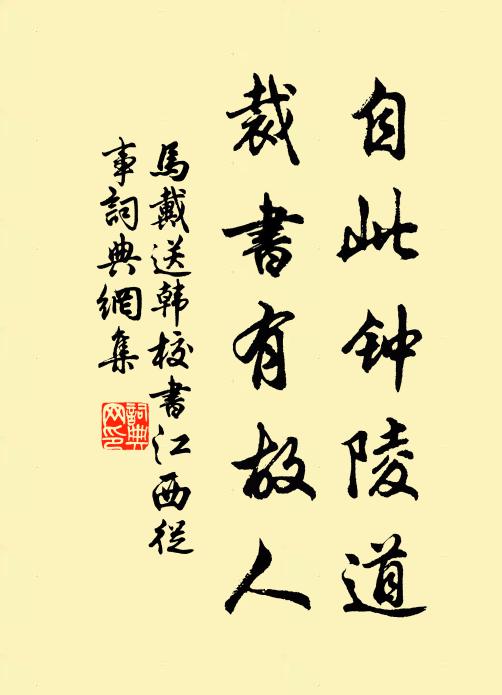 自此钟陵道
裁书有故人
馬戴送韩校书江西從
事詞典網集
詞典
网印